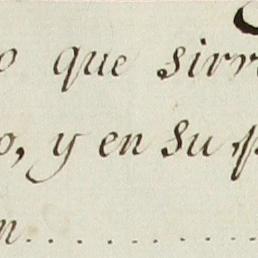 o que sirv
o, y en su p
n..........